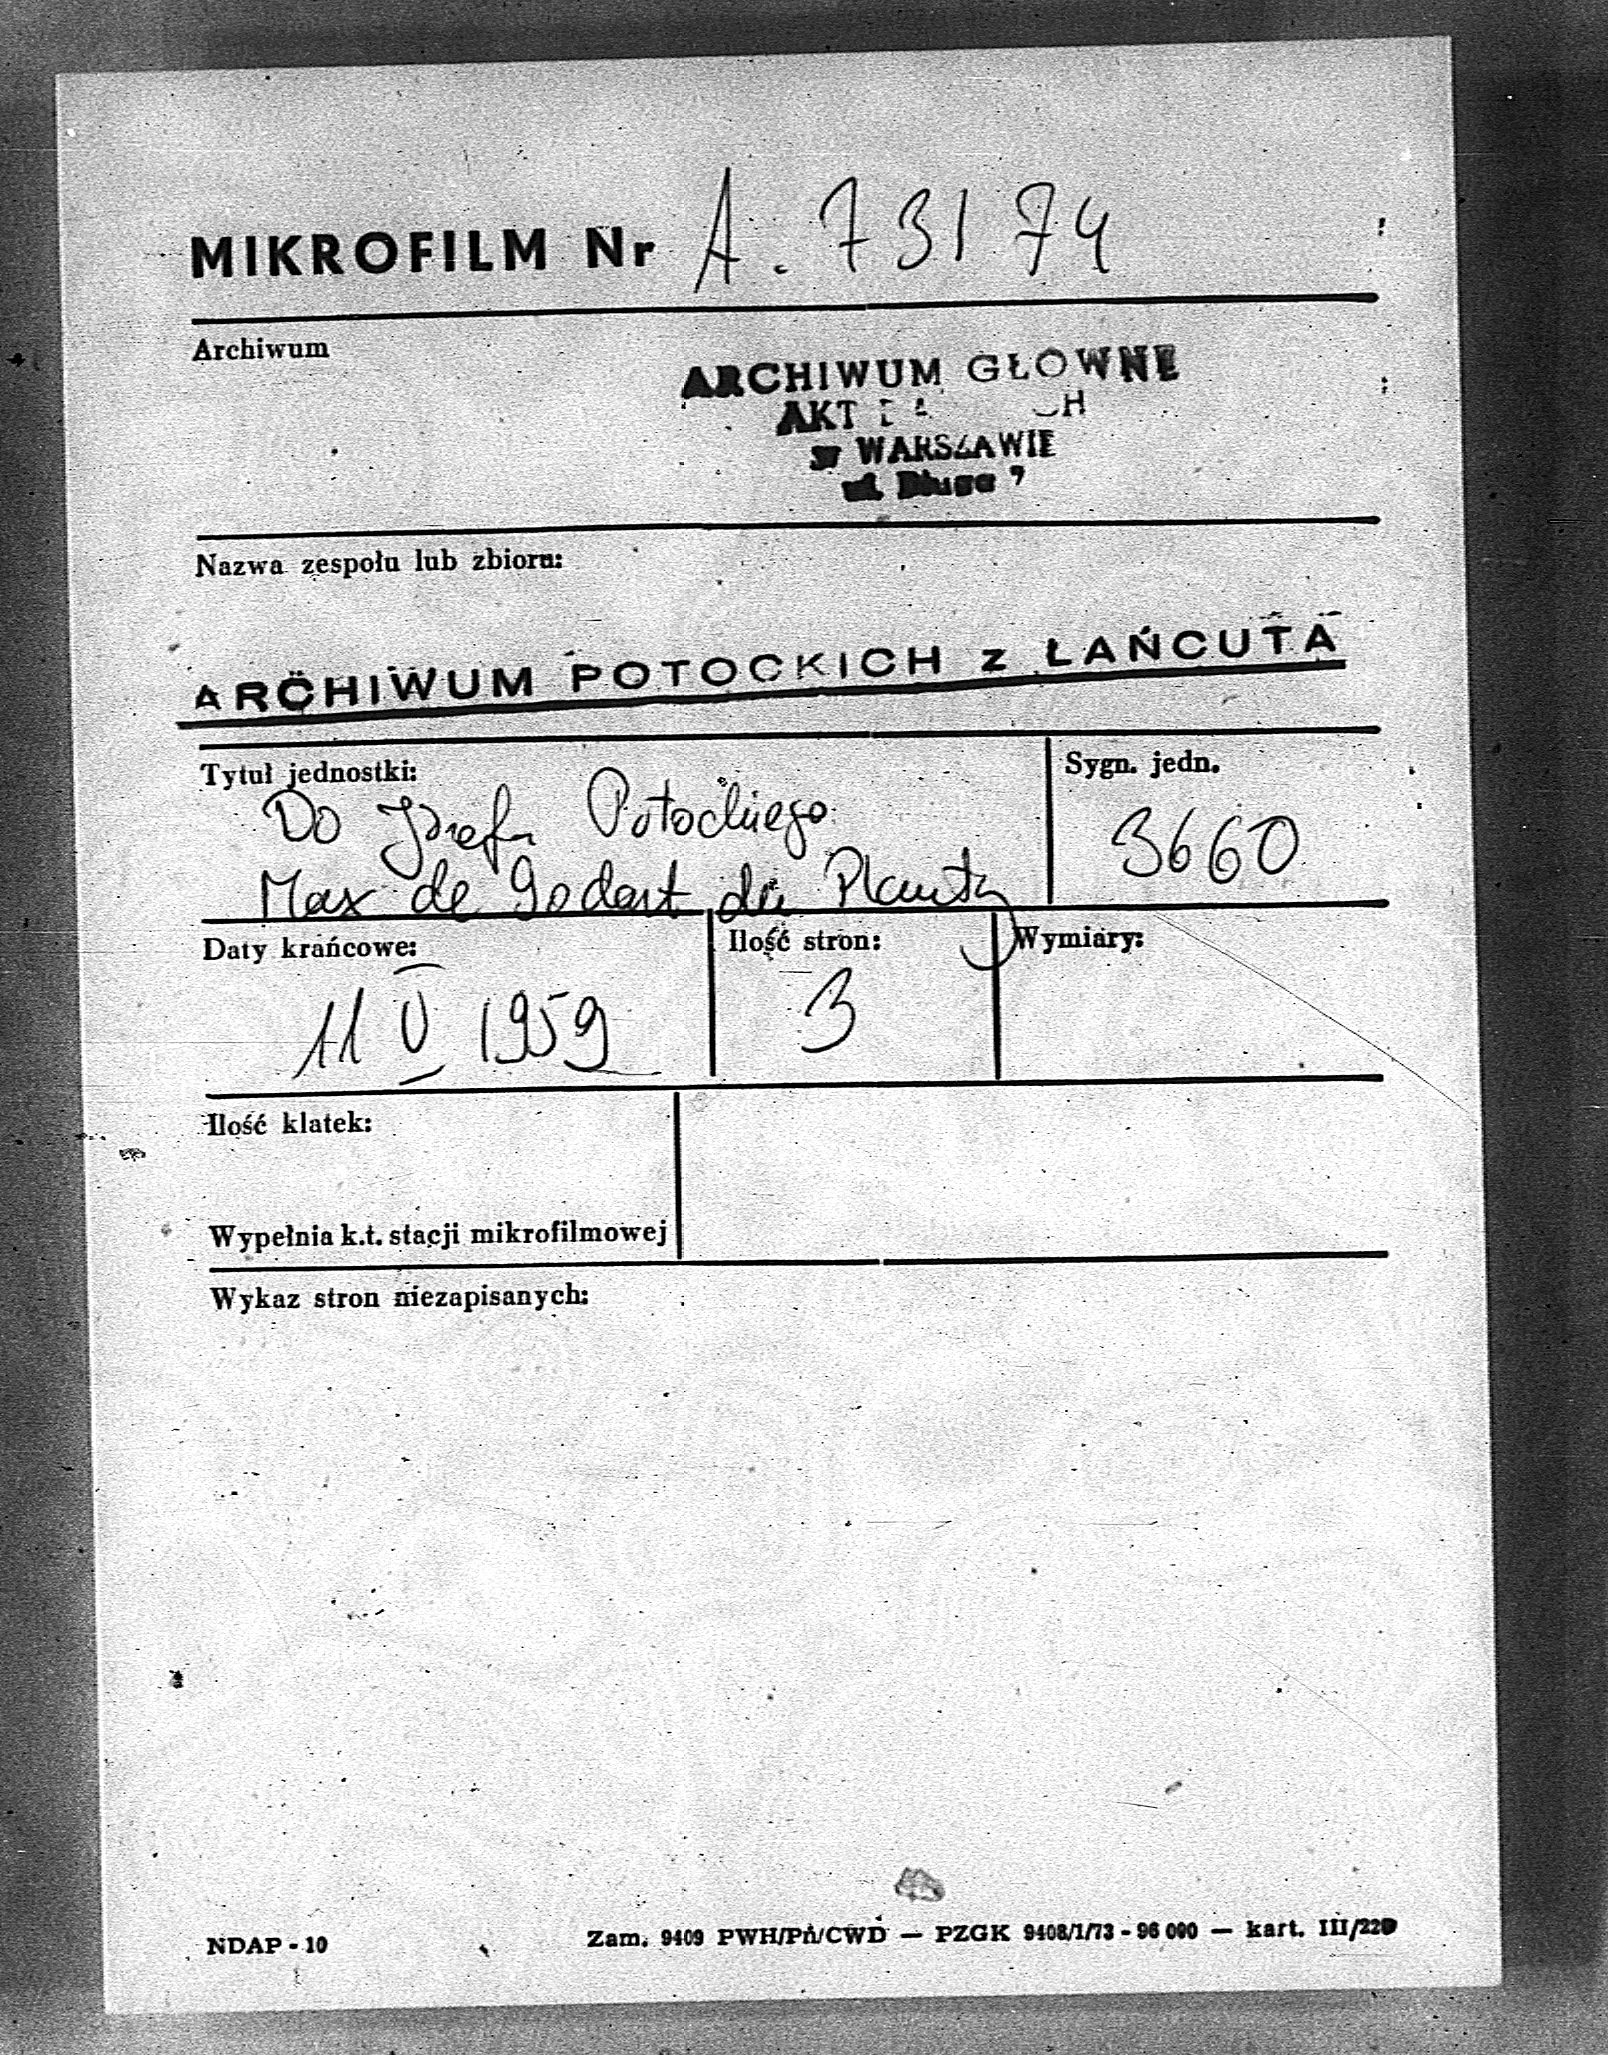 MIKROFILM Nr A. 73174
Archiwum
ARCHIWUM GŁOWNE
AKT
w WARSZAWIE
ul. Długa 7
Nazwa zespołu lub zbioru:
ARCHIWUM POTOCKICH z ŁAŃCUTA
Tytuł jednostki:
Sygn. jedn.
Do Józefa Potockiego
3660
Max de Godart du
Daty krańcowe:
Ilość stron:
Wymiary:
11 V 1959
3
Ilość klatek:
Wypełnia k.t. stacji mikrofilmowej
Wykaz stron niezapisanych:
NDAP - 10
Zam. 9409 PWH/Pń/CWD — PZGK 9408/1/73 - 96 000 — kart. III/220